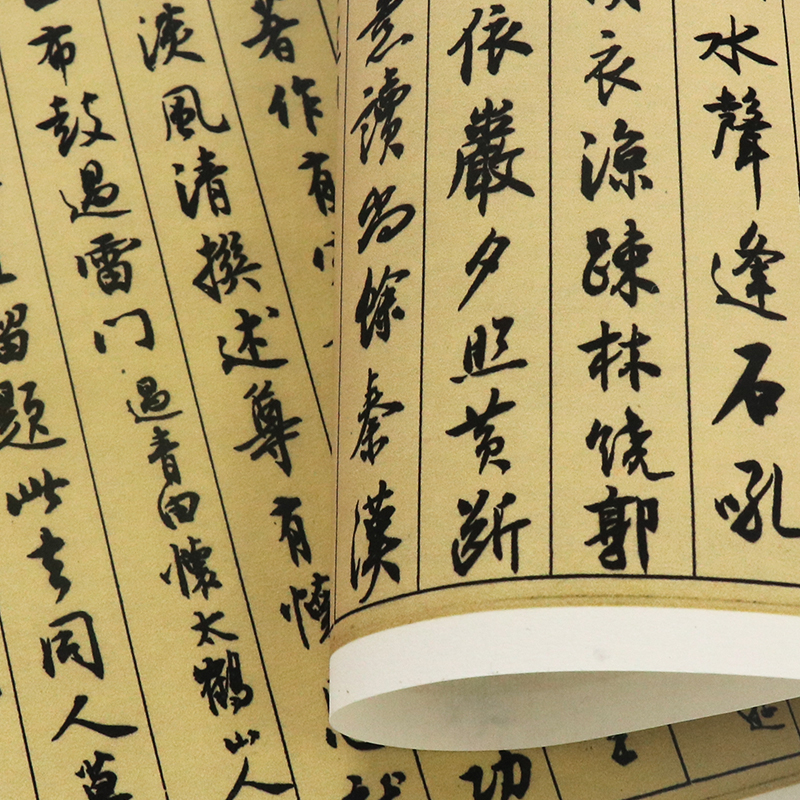 水聲逢石吼
衣涼疎林饶郭
依巖夕照黄斷
意讀尚餘秦漢
著作有
淡風清撰述尊有慎
布鼓過雷門
過青田懷太鶴山人
留題此去同人莫
功